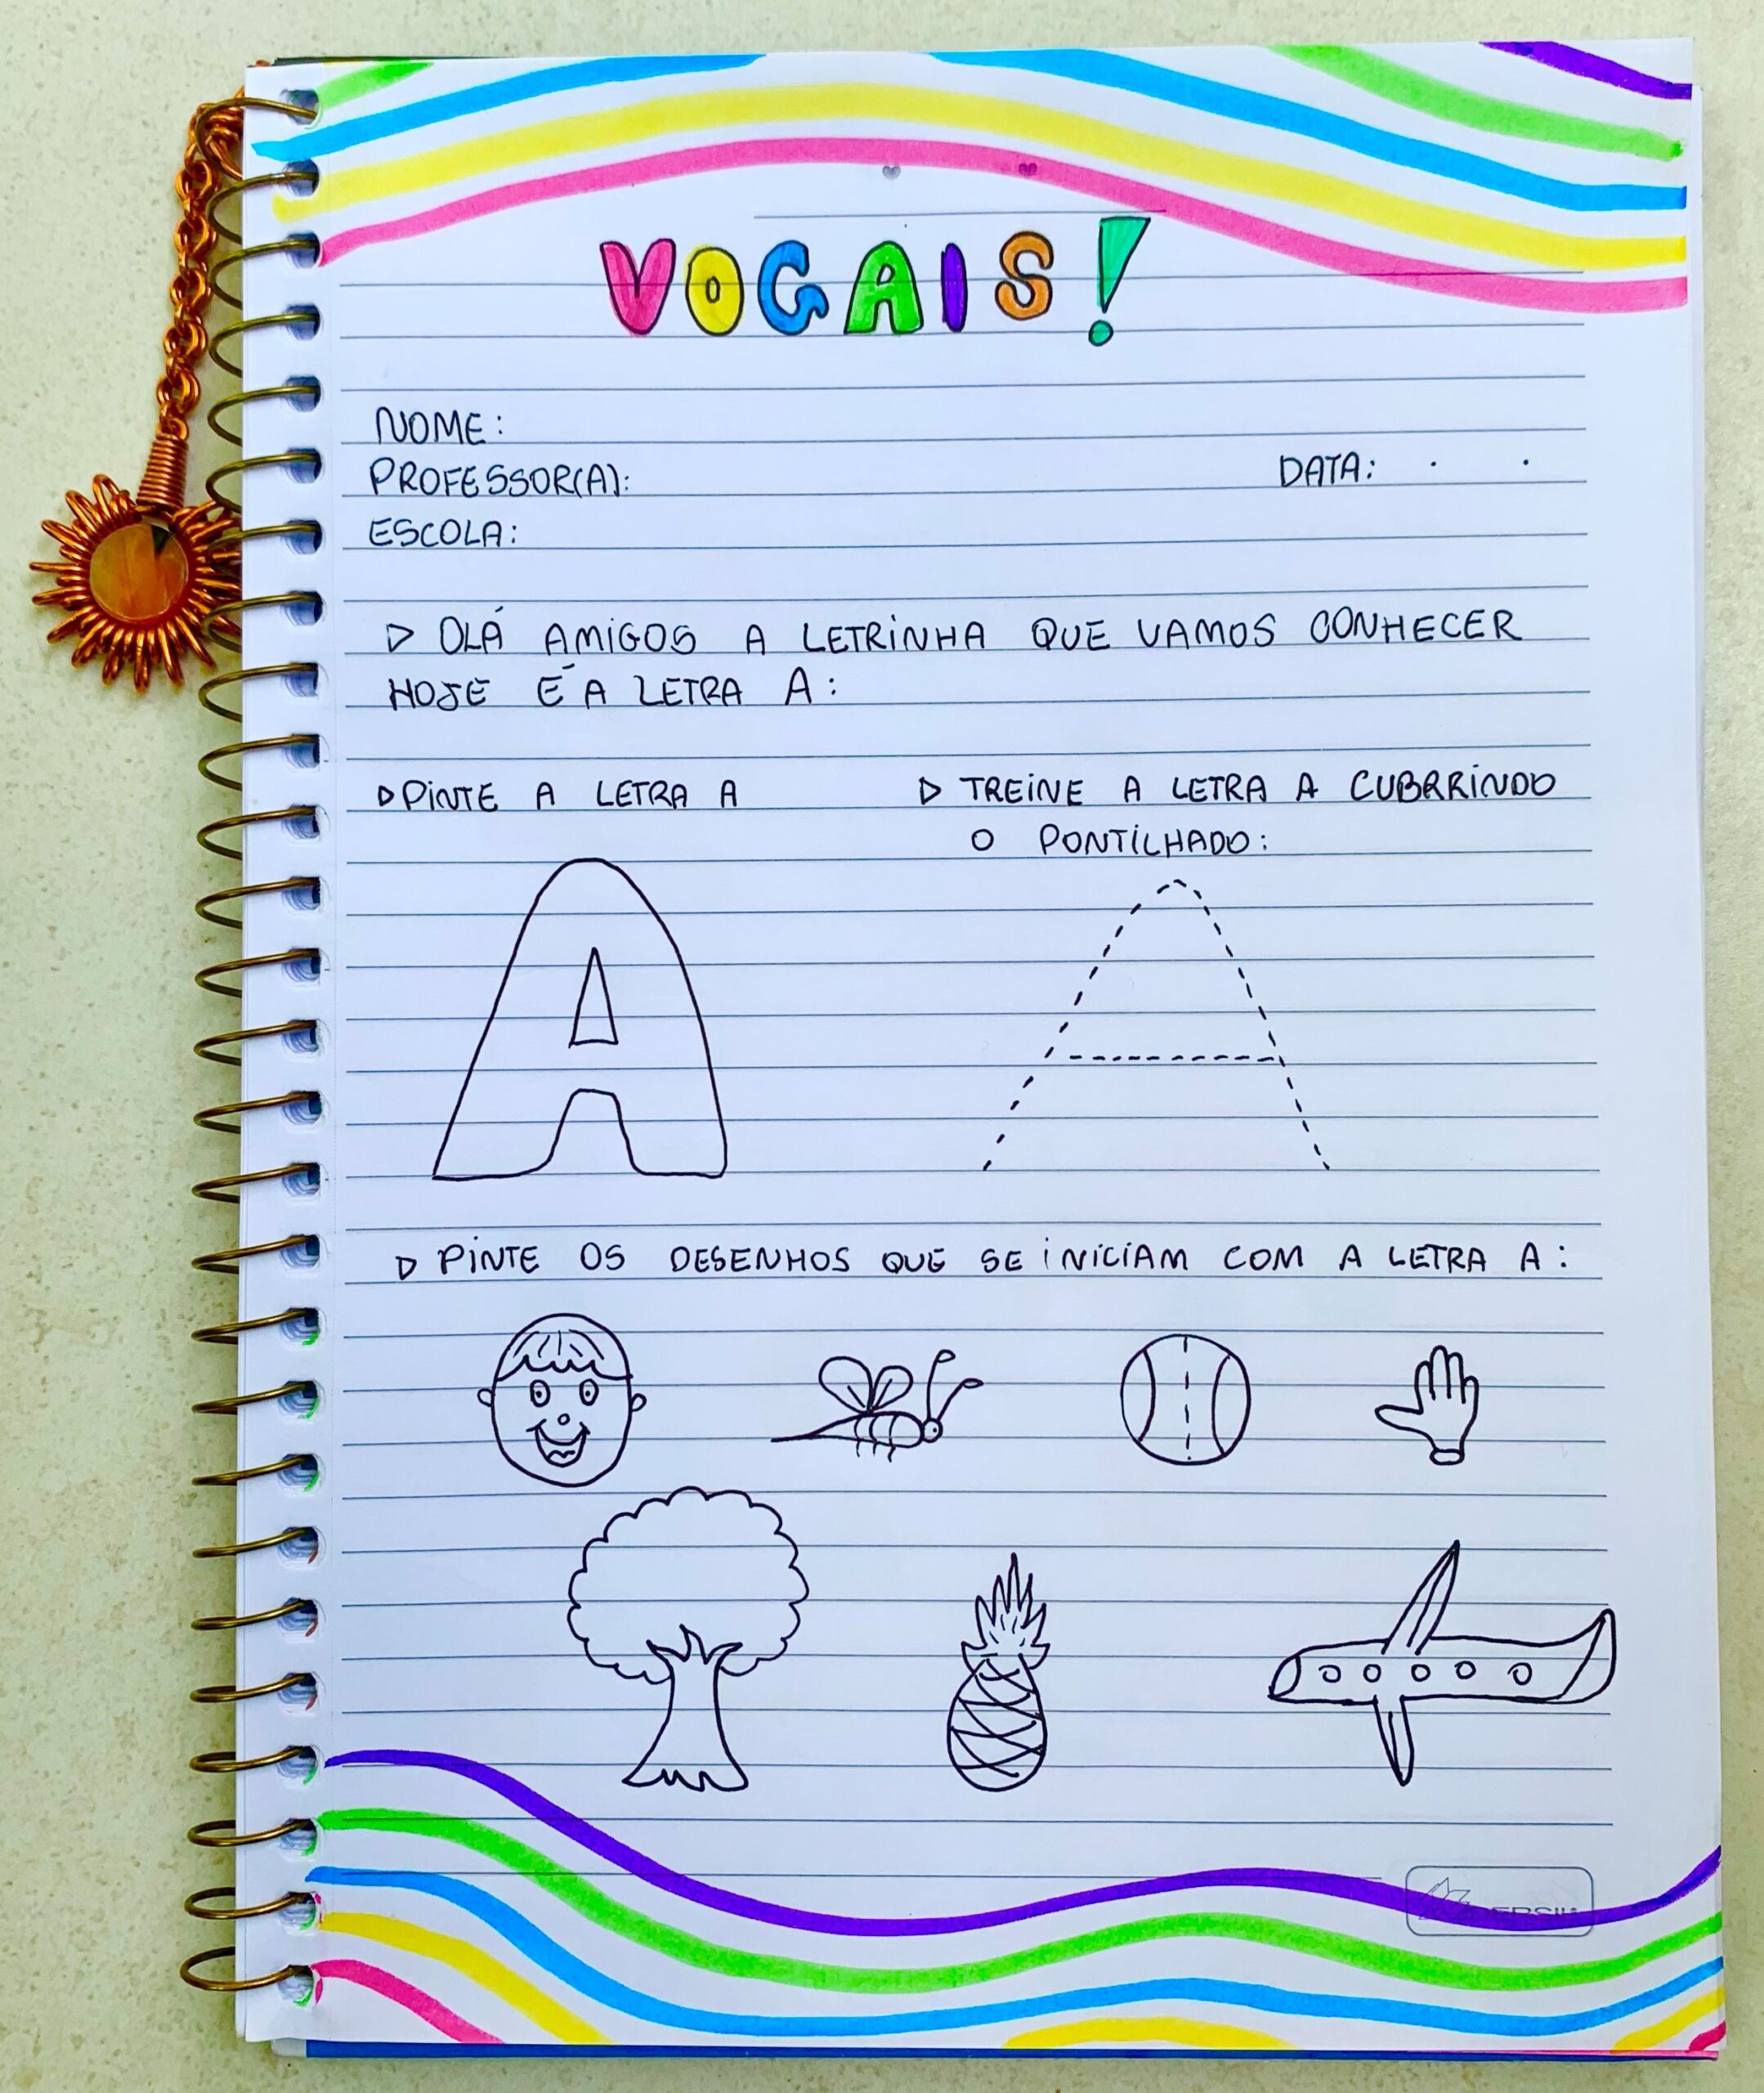 VOGAIS!
NOME:
PROFESSOR(A):
DATA: . .
ESCOLA:
▷ OLÁ AMIGOS A LETRINHA QUE VAMOS CONHECER
HOJE É A LETRA A:
▷ PINTE A LETRA A
▷ TREINE A LETRA A CUBRRINDO
O PONTILHADO:
A
A
▷ PINTE OS DESENHOS QUE SE INICIAM COM A LETRA A: